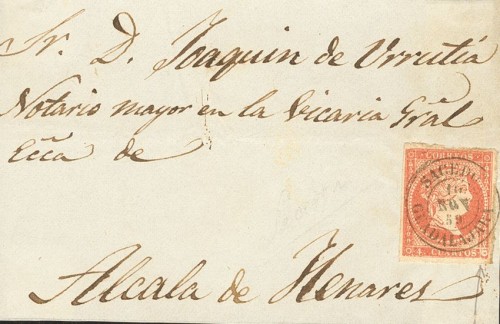 Sr. D. Joaquin de Urrutia
Notario mayor en la Vicaria Gral
Ecca de
CORREOS
SACEDON
16
NOV
59
GUADALAJARA
4 CUARTOS
Alcala de Henares